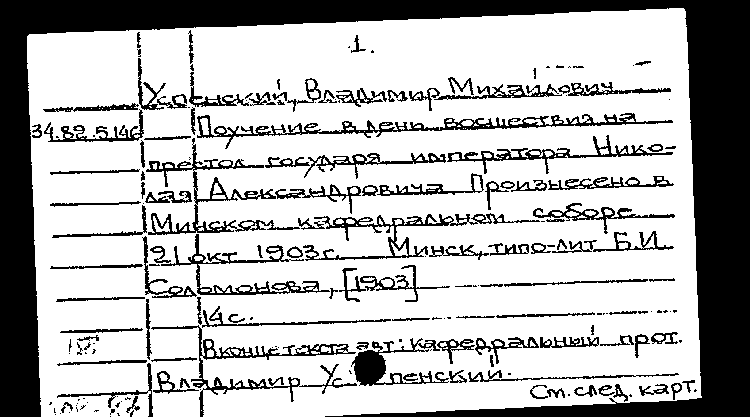 1.
Успенский, Владимир Михайлович
34.82.5146 Поучение в день восшествия на
престол государя императора Нико-
лая Александровича. Произнесено в
Минском кафедральном соборе
21 окт 1903 г. Минск, типо-лит Б.И.
Соломонова, [1903]
14 с.
В конце текста авт: кафедральный прот.
Владимир Успенский.
См. след. карт.